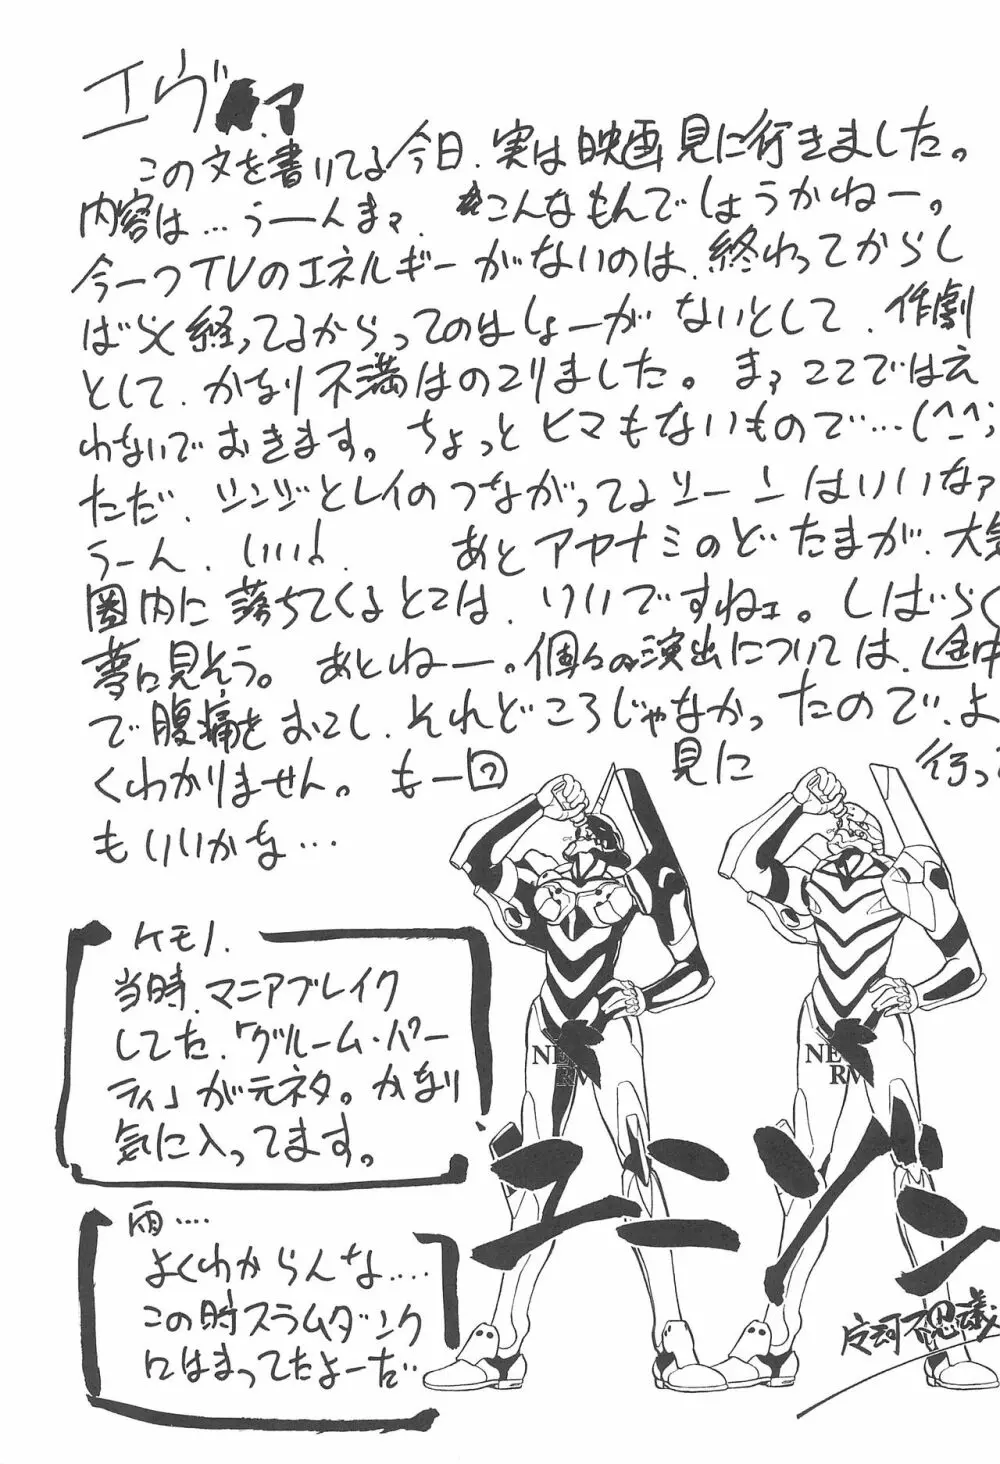 エヴァ
この文を書いてる今日、実は映画見に行きました。
内容は…うーんまァ、こんなもんでしょうかねー。
今一つTVのエネルギーがないのは、終わってからし
ばらく経ってるからってのはしょーがないとして、作劇
として、かなり不満はのこりました。まァここでは云
わないでおきます。ちょっとヒマもないもので…(^^;
ただ、シンジとレイのつながってるシーンはいいなァ
うーん、いい! あとアヤナミのどたまが、大気
圏内に落ちてくるとこは、いいですねェ。しばらく
夢に見そう。あとねー。個々の演出については、途中
で腹痛をおこし、それどころじゃなかったので、よ
くわかりません。も一回見に行って
もいいかな…
ケモノ.
当時、マニアブレイク
してた、「グルーム・パー
ティ」が元ネタ。かなり
気に入ってます。
雨….
よくわからんな….
この時スラムダンク
にはまってたよーだ…
NE
RV
NE
RV